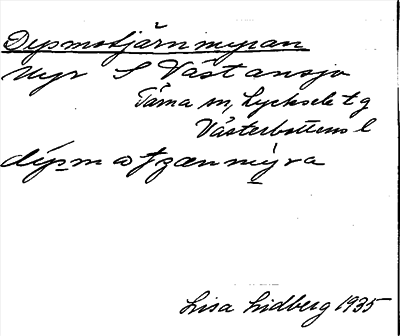 Depmstjärnmyran
myr S Västansjö
Tärna sn, Lycksele tg
Västerbottens l
Lisa Lidberg 1935